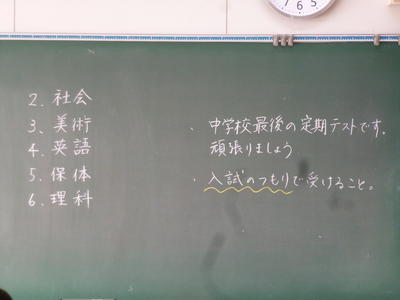 2. 社会
3. 美術
4. 英語
5. 保体
6. 理科
、中学校最後の定期テストです。
頑張りましょう
・入試のつもりで受けること。